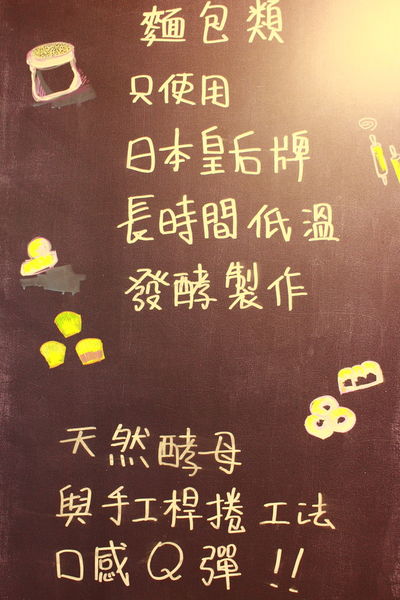 麵包類
只使用
日本皇后牌
長時間低溫
發酵製作
天然酵母
與手工桿捲工法
口感Q彈!!